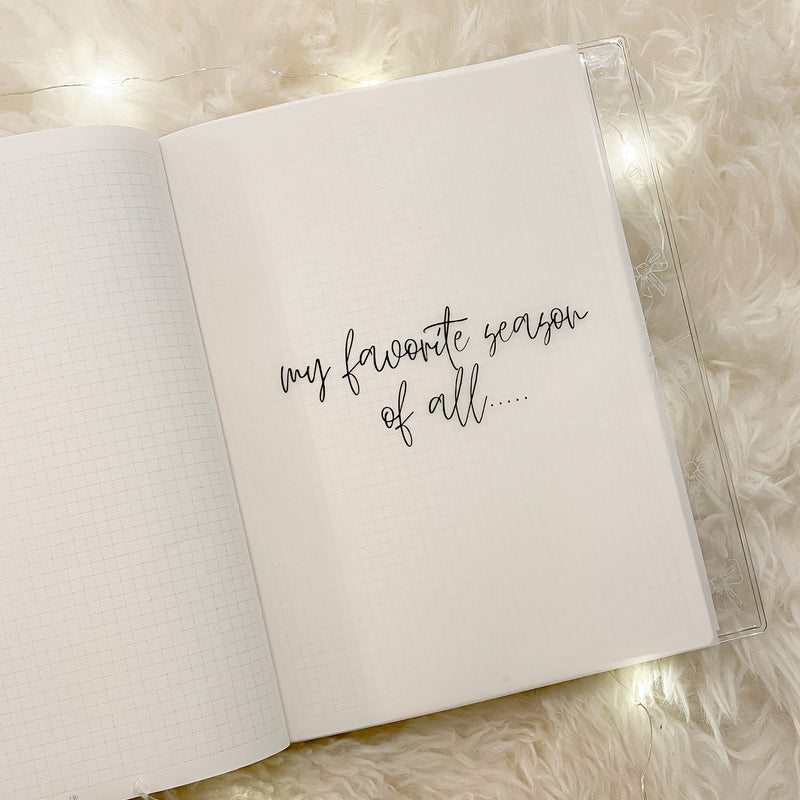 my favorite season
of all.....